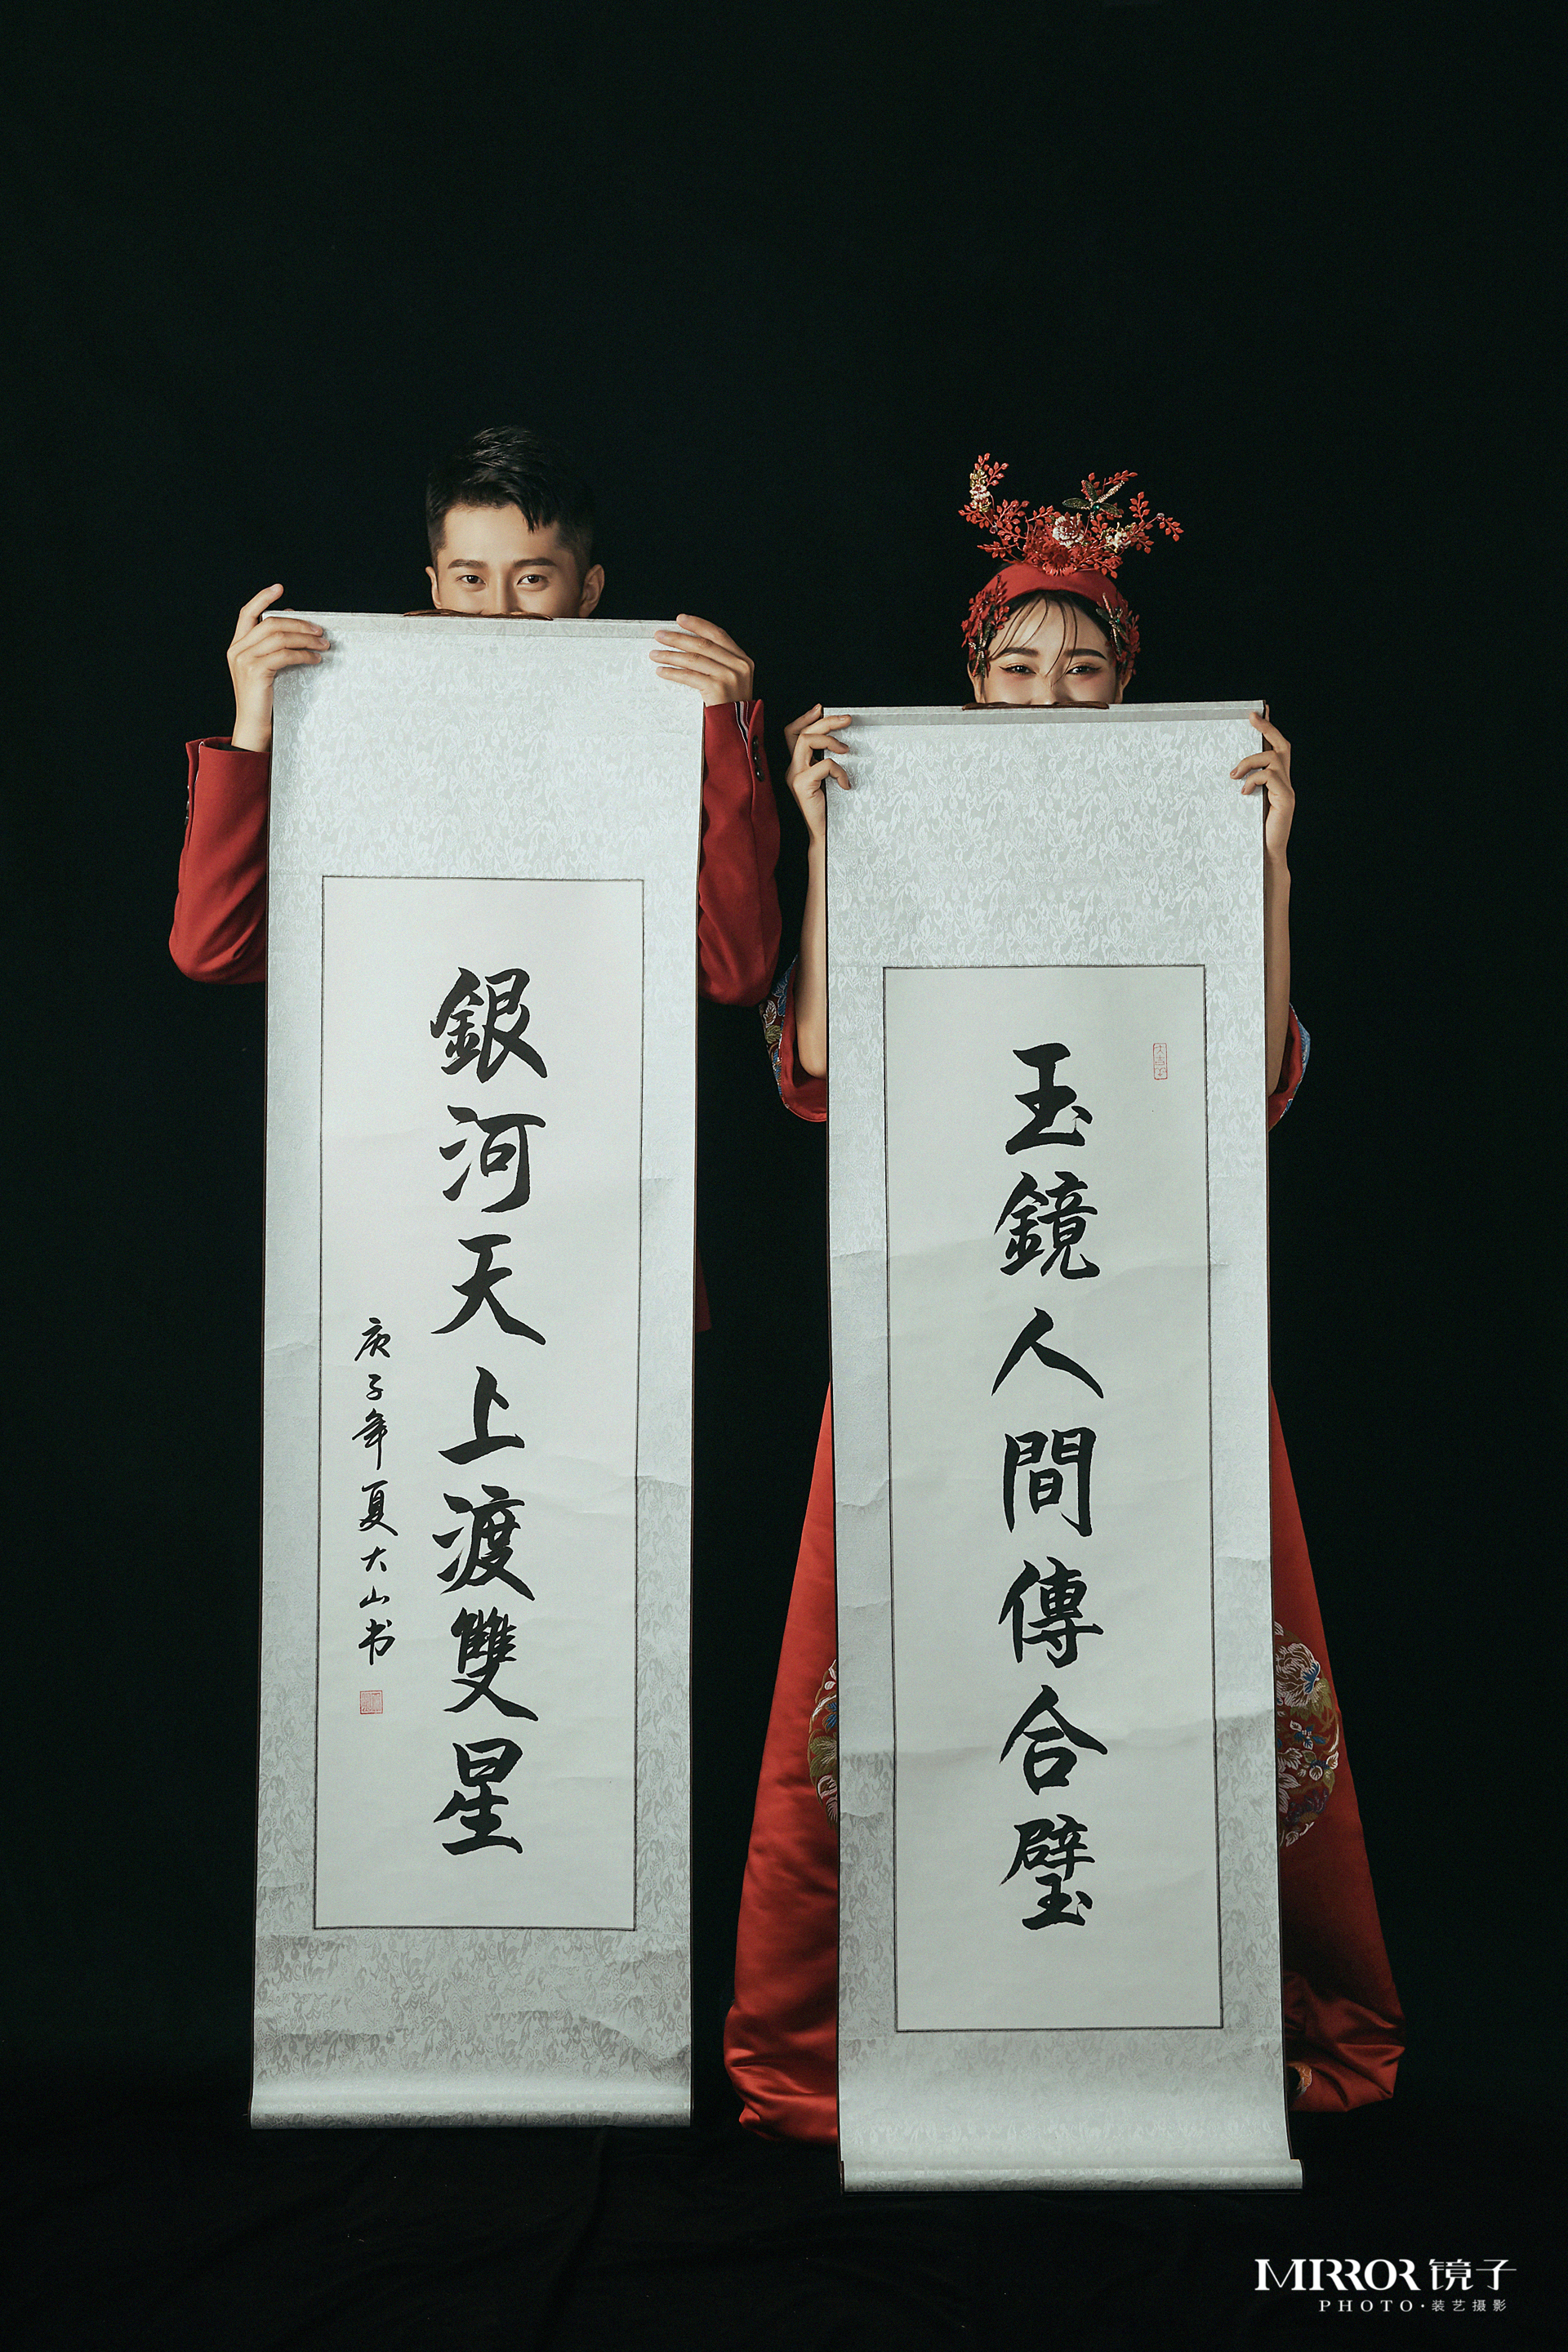 玉鏡人間傳合璧
銀河天上渡雙星
庚子年夏大山书
MIRROR 镜子
PHOTO·装艺摄影